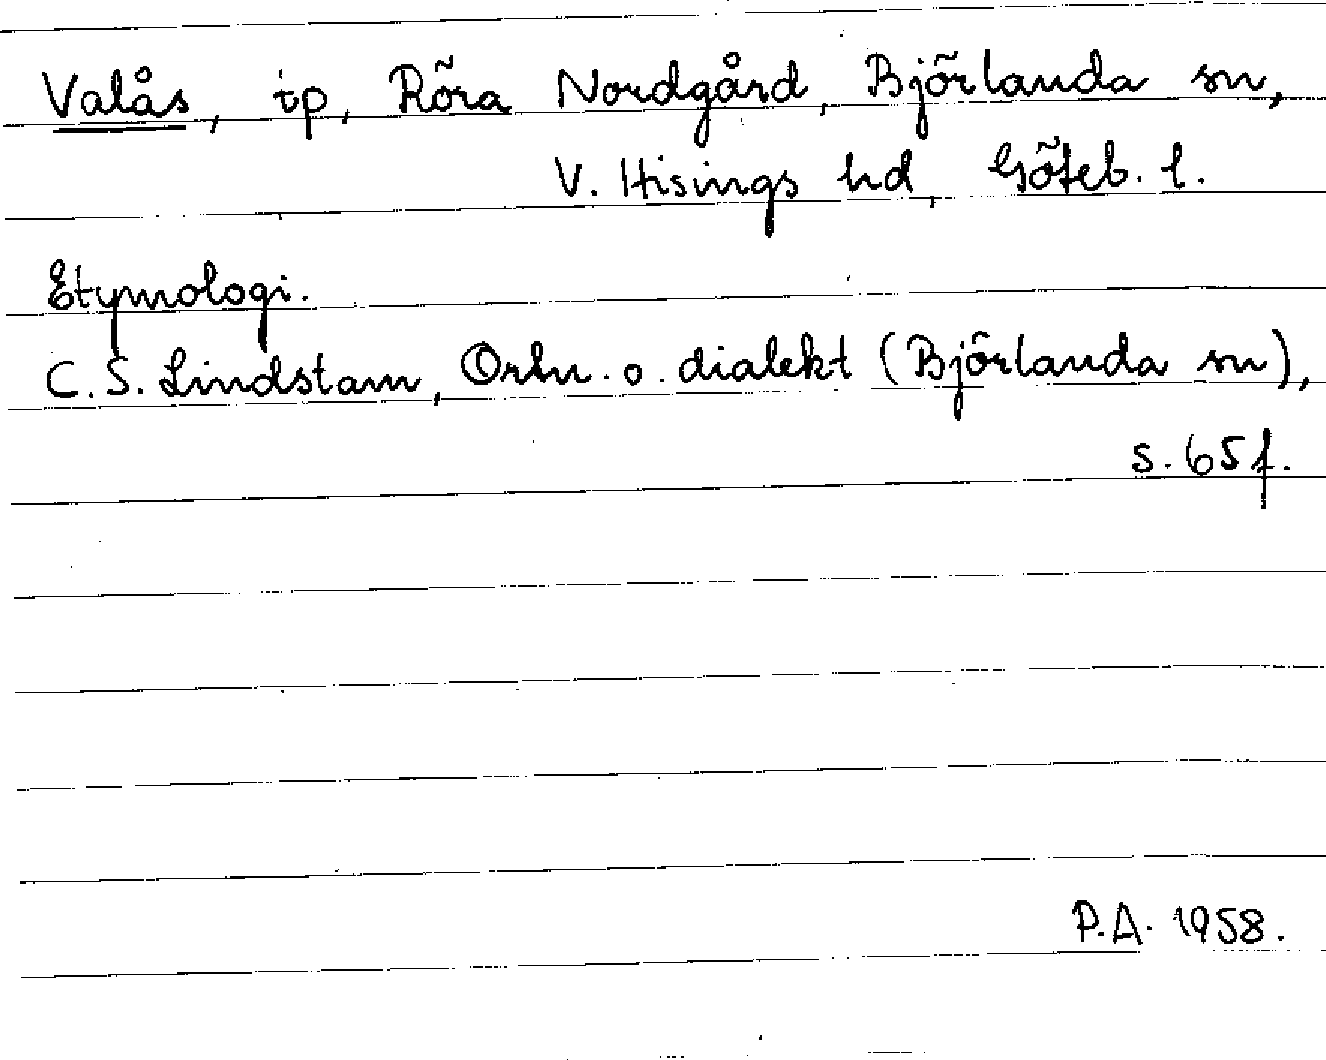 Valås, tp, Röra Nordgård, Björlanda sn,
V. Hisings hd, Göteb. l.
Etymologi.
C. S. Lindstam, Ortn. o. dialekt (Björlanda sn),
s. 65 f.
P.A. 1958.